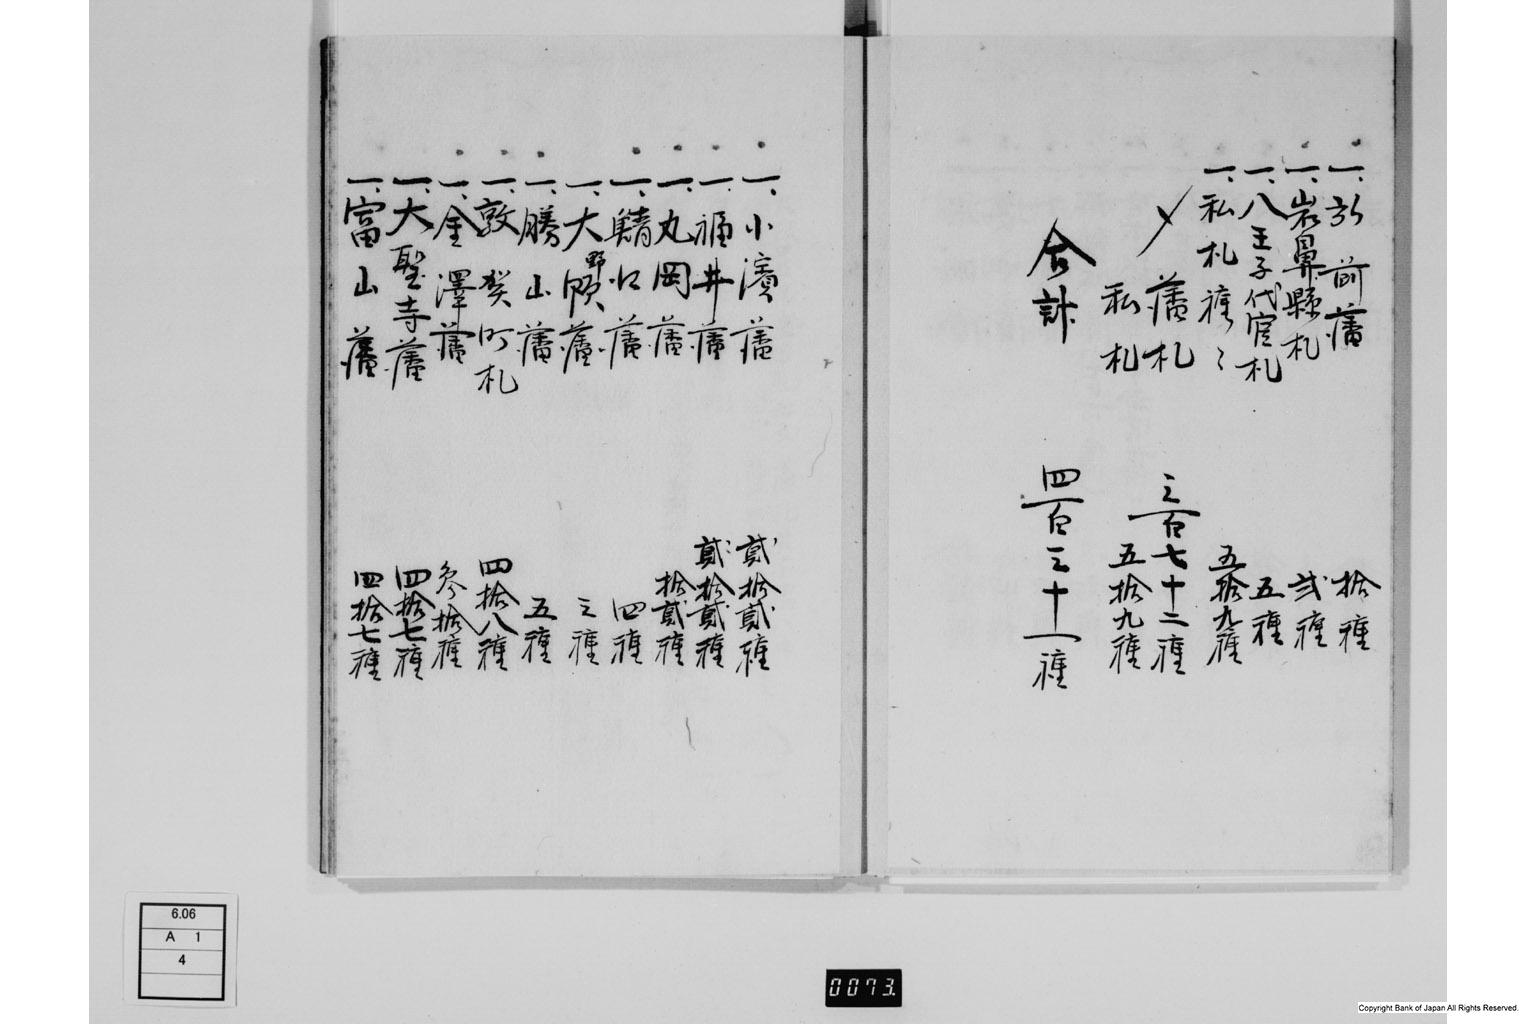 一、弘前藩 拾種
一、岩鼻縣札 弐種
一、八王子代官札 五種
一、私札種々 五拾九種
〆藩札 三百七十二種
私札 五拾九種
合計 四百三十一種
一、小濱藩 貳拾貳種
一、福井藩 貳拾貳種
一、丸岡藩 拾貳種
一、鯖江藩 四種
一、大野領藩 三種
一、勝山藩 五種
一、敦賀町札 四拾八種
一、金澤藩 参拾種
一、大聖寺藩 四拾七種
一、富山藩 四拾七種
6.06
A 1
4
0073
Copyright Bank of Japan All Rights Reserved.